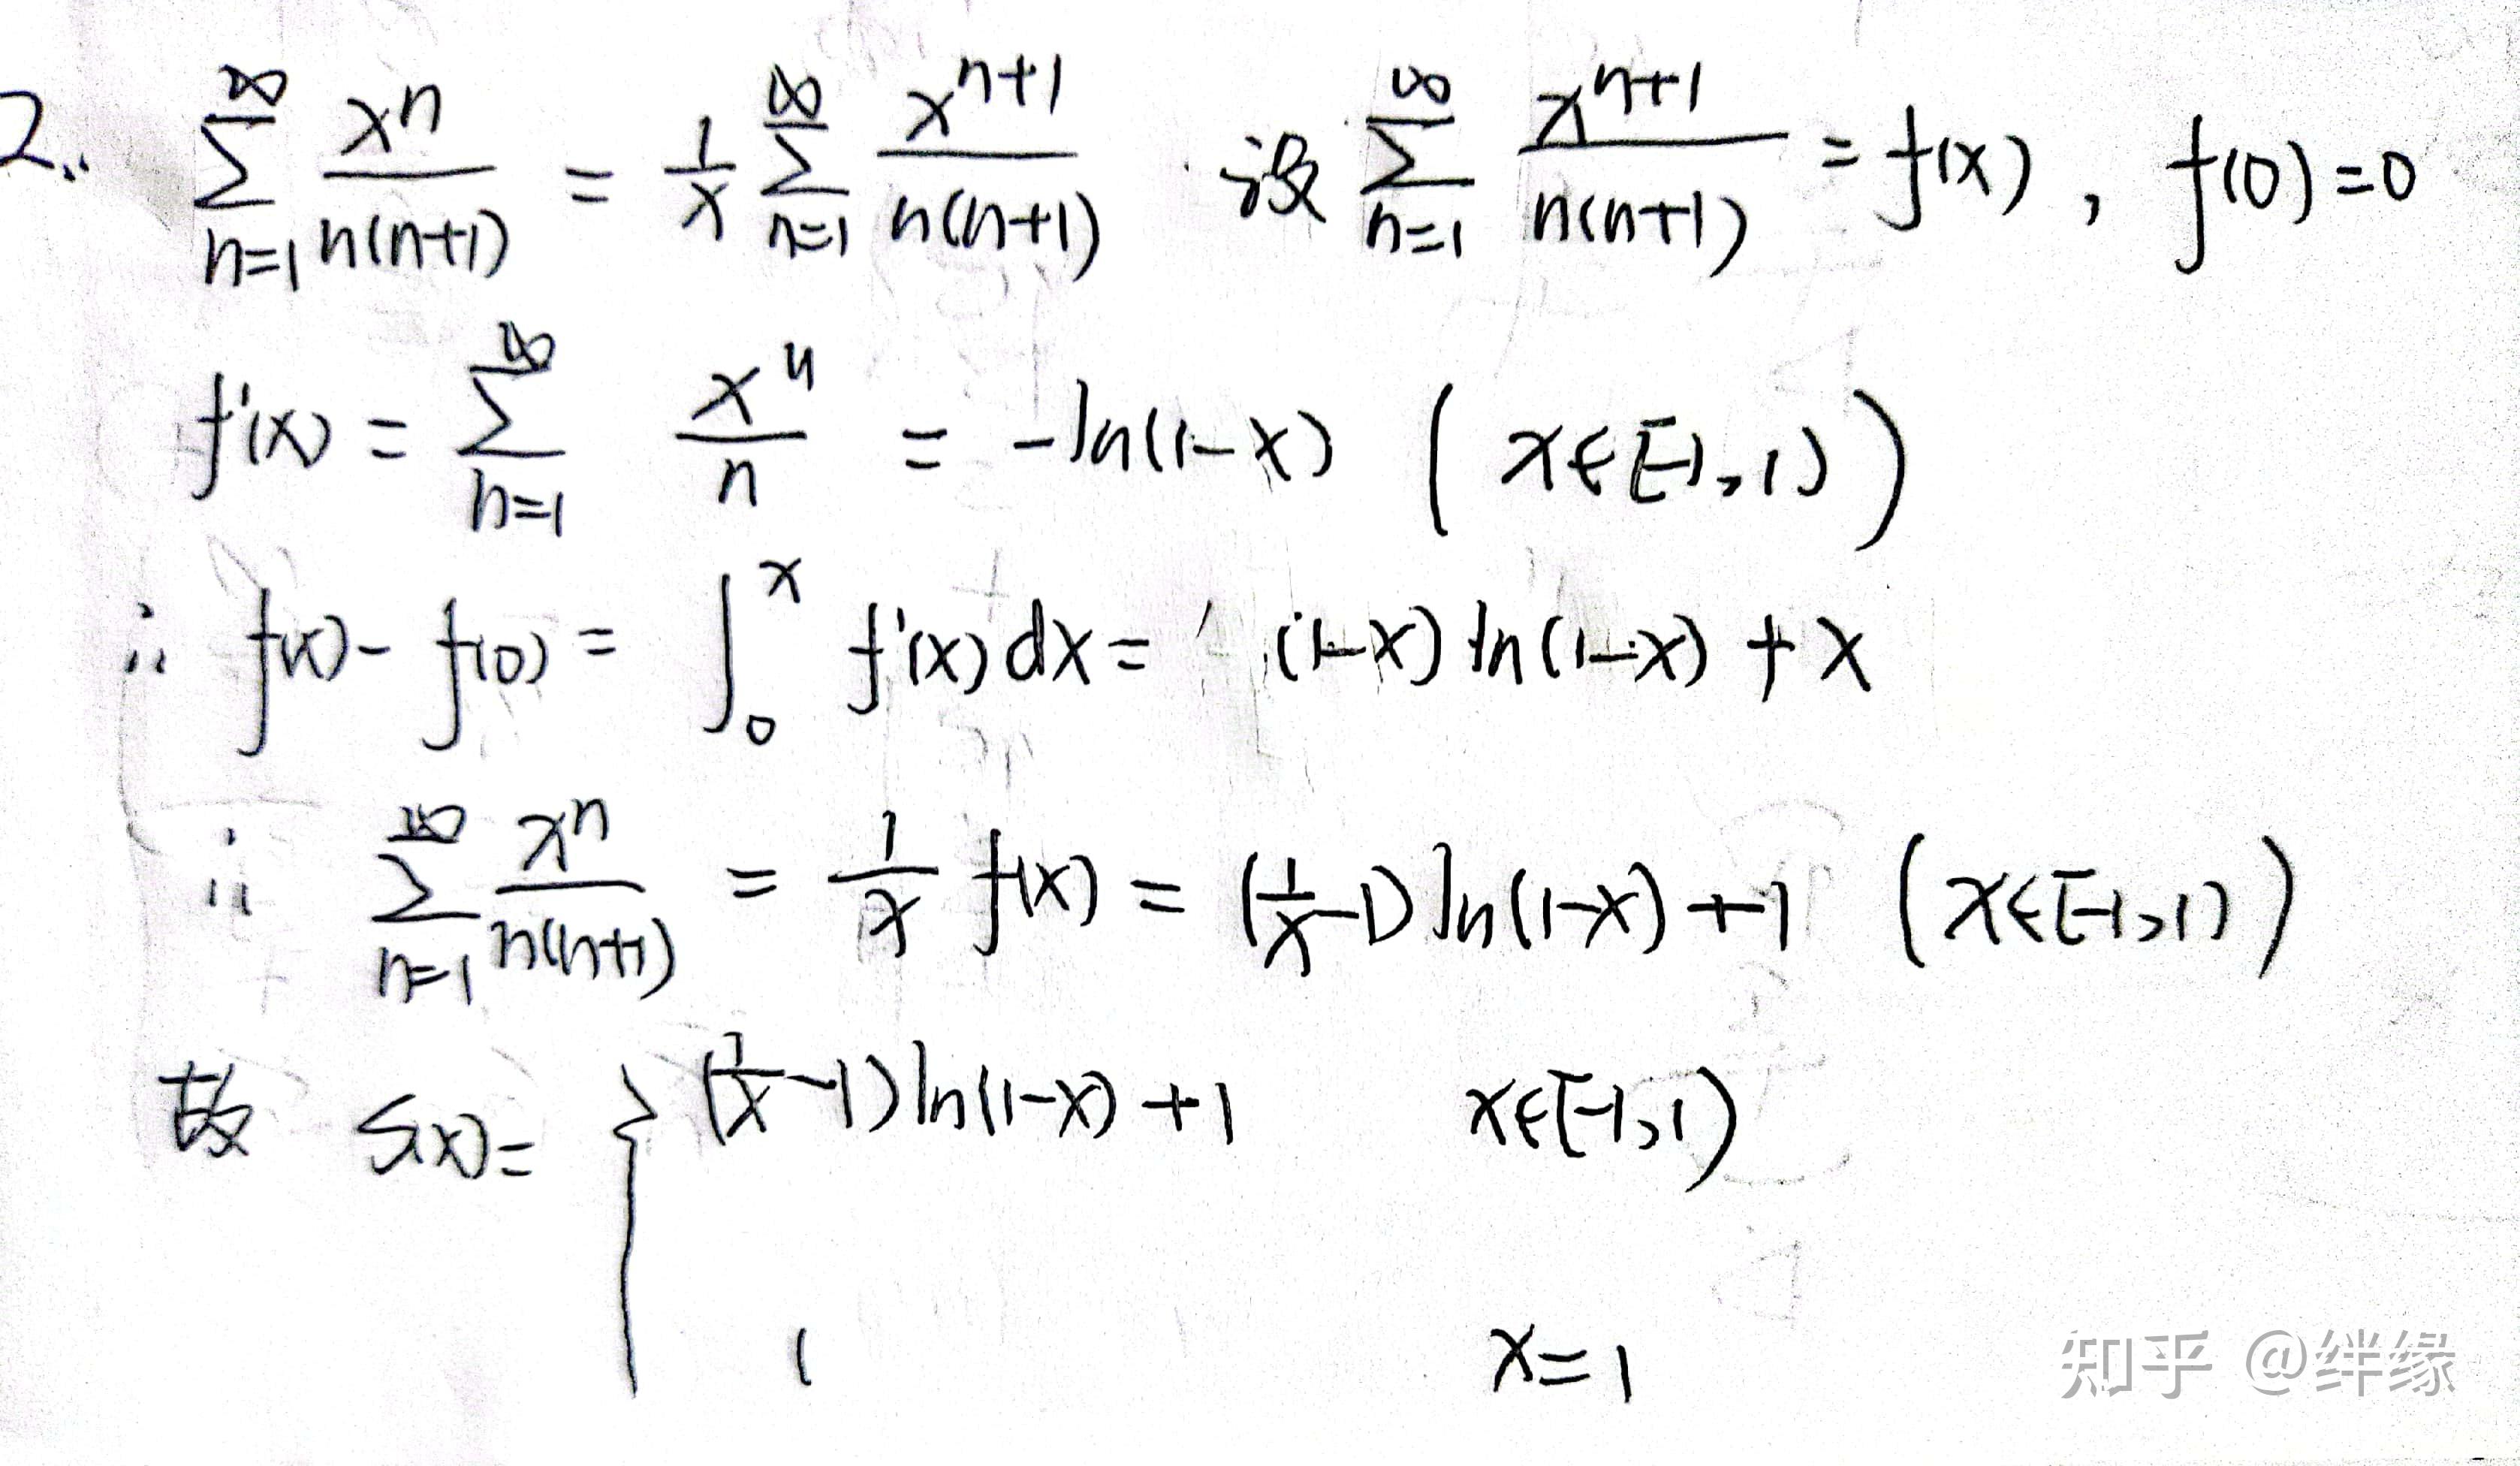 2. ∑_{n=1}^{∞} x^n/(n(n+1)) = 1/x ∑_{n=1}^{∞} x^{n+1}/(n(n+1)) 设 ∑_{n=1}^{∞} x^{n+1}/(n(n+1)) = f(x), f(0)=0
f'(x) = ∑_{n=1}^{∞} x^n/n = -ln(1-x) (x∈[-1,1))
∴ f(x)-f(0) = ∫_0^x f'(x)dx = (1-x)ln(1-x)+x
∴ ∑_{n=1}^{∞} x^n/(n(n+1)) = 1/x f(x) = (1/x-1)ln(1-x)+1 (x∈[-1,1))
故 S(x)= { (1/x-1)ln(1-x)+1 x∈[-1,1)
1 x=1
知乎 @绊缘